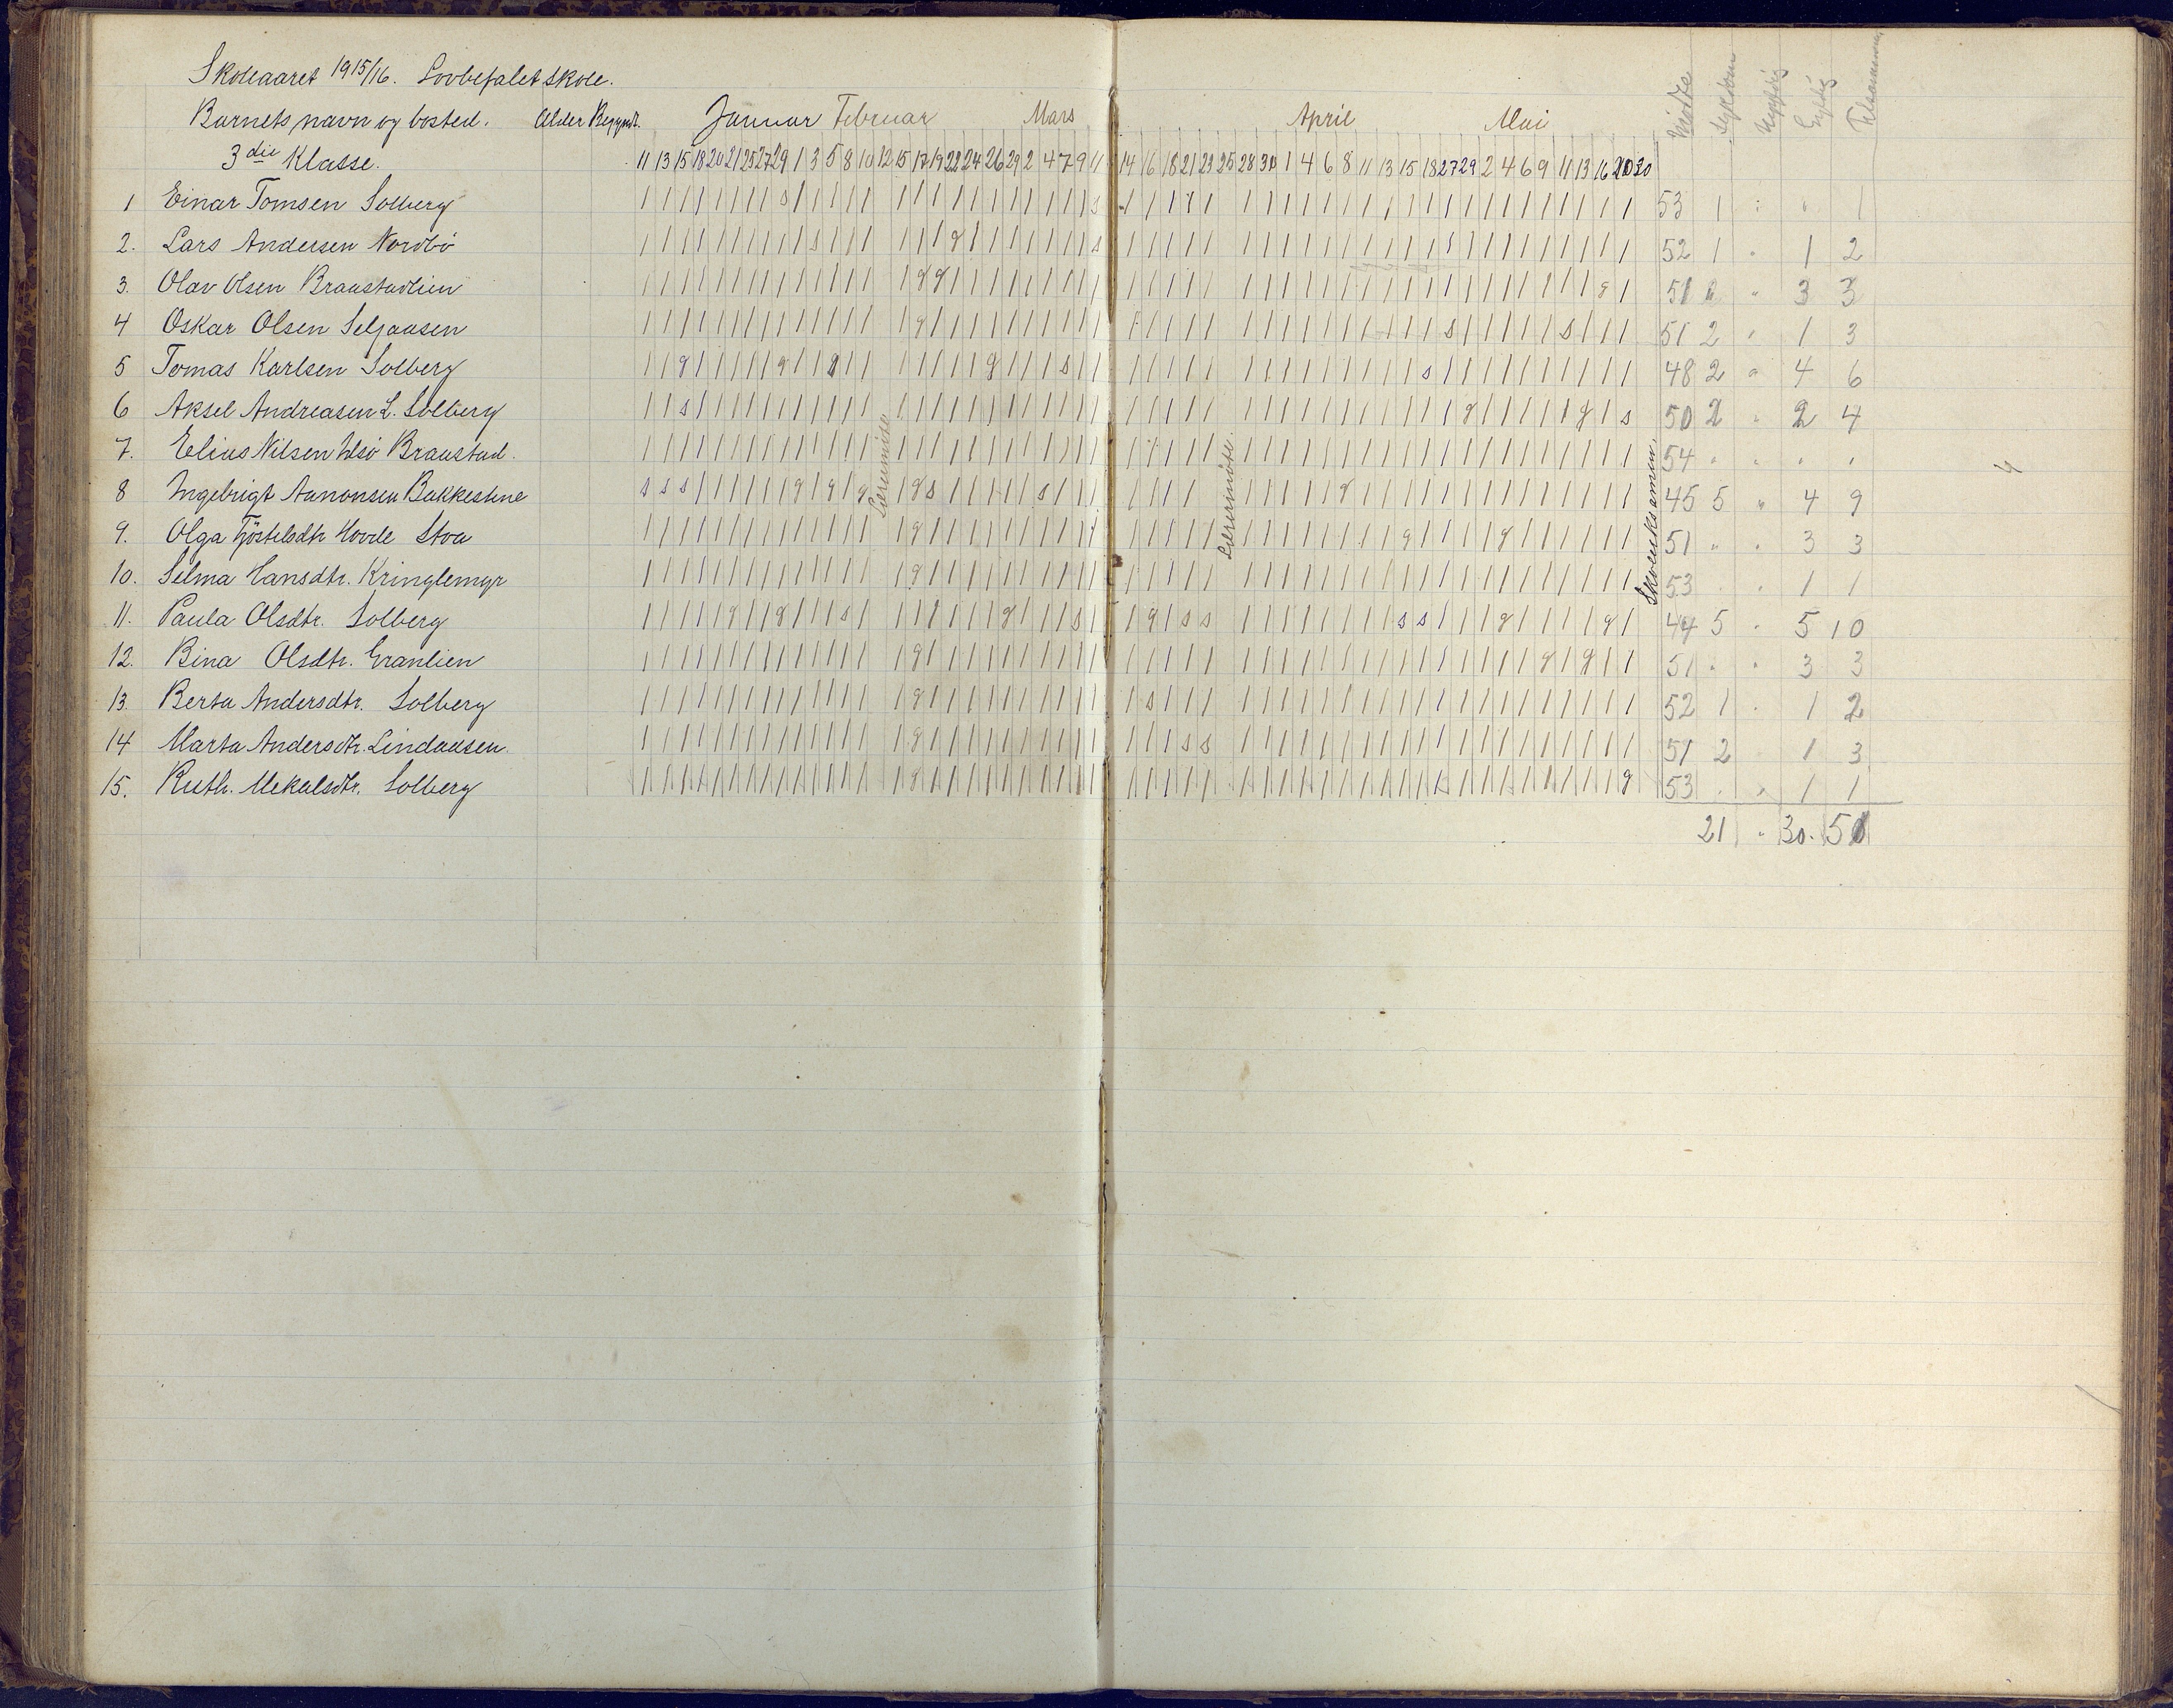 Skoleaaret 1915/16. Lovbefalet skole.
Barnets navn og bosted. Alder Begyndt. Januar Februar Mars April Mai Mødte Sygdom Ugyldig Gyldig Tilsammen
3die Klasse. 11 13 15 18 20 21 25 27 29 1 3 5 8 10 12 15 17 19 22 24 26 29 2 4 7 9 11 14 16 18 21 23 25 28 30 1 4 6 8 11 13 15 18 27 29 2 4 6 9 11 13 16 20 30
1 Einar Tomsen Solberg 53 1 " " 1
2. Lars Andersen Nordbö 52 1 " 1 2
3. Olav Olsen Braastadlien 51 " " 3 3
4 Oskar Olsen Seljaasen 51 2 " 1 3
5 Tomas Karlsen Solberg 48 2 " 4 6
6 Aksel Andreasen L. Solberg 50 2 " 2 4
7. Elius Nilsen Braastad. 54 " " " "
8 Ingebrigt Aanonsen Bakkestine 45 5 " 4 9
9. Olga Hovde Stoa 51 " " 3 3
10. Selma Hansdtr. Kringlemyr 53 " " 1 1
11. Paula Olsdtr. Solberg 44 5 " 5 10
12. Bina Olsdtr. Granlien 51 " " 3 3
13. Berta Andersdtr. Solberg 52 1 " 1 2
14 Marta Andersdtr. Lindaasen. 51 2 1 3
15. Ruth. Mekalsdtr. Solberg 53 " " 1 1
21 " 30. 51
Lærermöte
Lærermöte.
Skoleeksamen.